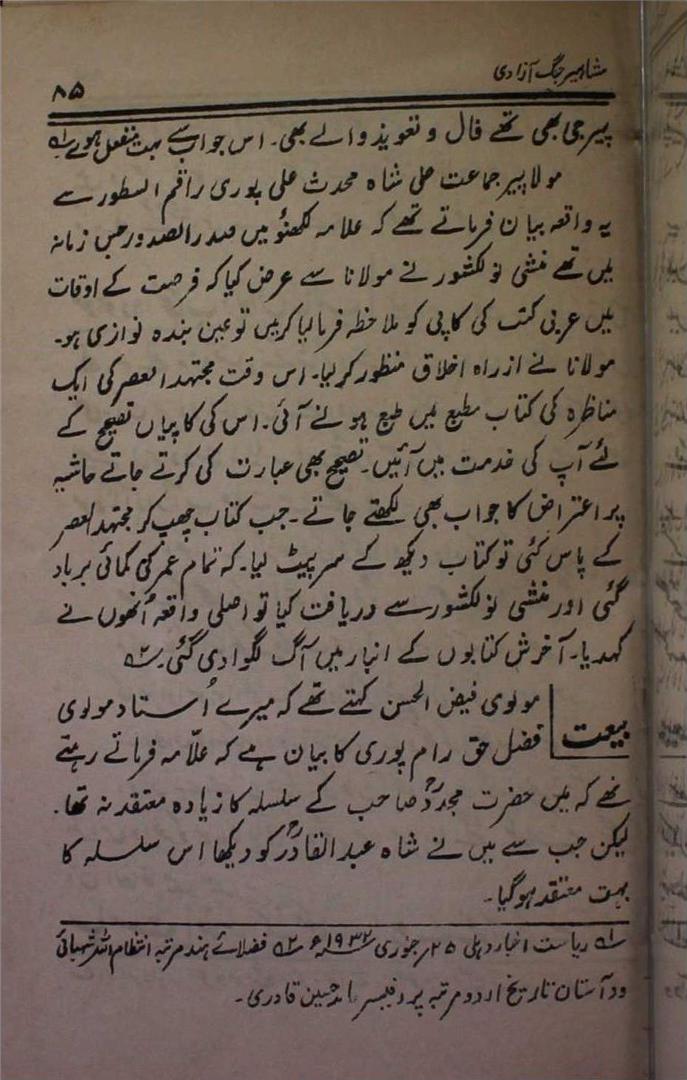 مشاہیر جنگ آزادی
۸۵
پیر جی بھی تھے فال و تعویذ والے بھی۔ اس جواب سے بہت منفعل ہوئے ؂۱
مولانا پیر جماعت علی شاہ محدث علی پوری راقم السطور سے
یہ واقعہ بیان فرماتے تھے کہ علامہ لکھنؤ میں صدر الصدور جس زمانہ
میں تھے منشی نولکشور نے مولانا سے عرض کیا کہ فرصت کے اوقات
میں عربی کتب کی کاپی کو ملاحظہ فرما لیا کریں تو عین بندہ نوازی ہو۔
مولانا نے از راہ اخلاق منظور کر لیا۔ اس وقت مجتہد العصر کی ایک
مناظرہ کی کتاب مطبع میں طبع ہونے آئی۔ اس کی کاپیاں تصحیح کے
لئے آپ کی خدمت میں آئیں۔ تصحیح بھی عبارت کی کرتے جاتے حاشیہ
پر اعتراض کا جواب بھی لکھتے جاتے۔ جب کتاب چھپ کر مجتہد العصر
کے پاس گئی تو کتاب دیکھ کے سر پیٹ لیا۔ کہ تمام عمر کی کمائی برباد
گئی اور منشی نولکشور سے دریافت کیا تو اصلی واقعہ اُنھوں نے
کہدیا۔ آخرش کتابوں کے انبار میں آگ لگوا دی گئی ؂۲
بیعت
مولوی فیض الحسن کہتے تھے کہ میرے اُستاد مولوی
فضل حق رام پوری کا بیان ہے کہ علّامہ فرماتے رہتے
تھے کہ میں حضرت مجددؒ صاحب کے سلسلہ کا زیادہ معتقد نہ تھا۔
لیکن جب سے میں نے شاہ عبدالقادرؒ کو دیکھا اس سلسلہ کا
بہت معتقد ہو گیا۔
؂۱ ریاست اخبار دہلی ۲۵ جنوری ۱۹۳۲ء ؂۲ فضلائے ہند مرتبہ انتظام اللہ شہابی
و داستان تاریخ اردو مرتبہ پروفیسر حسین قادری۔